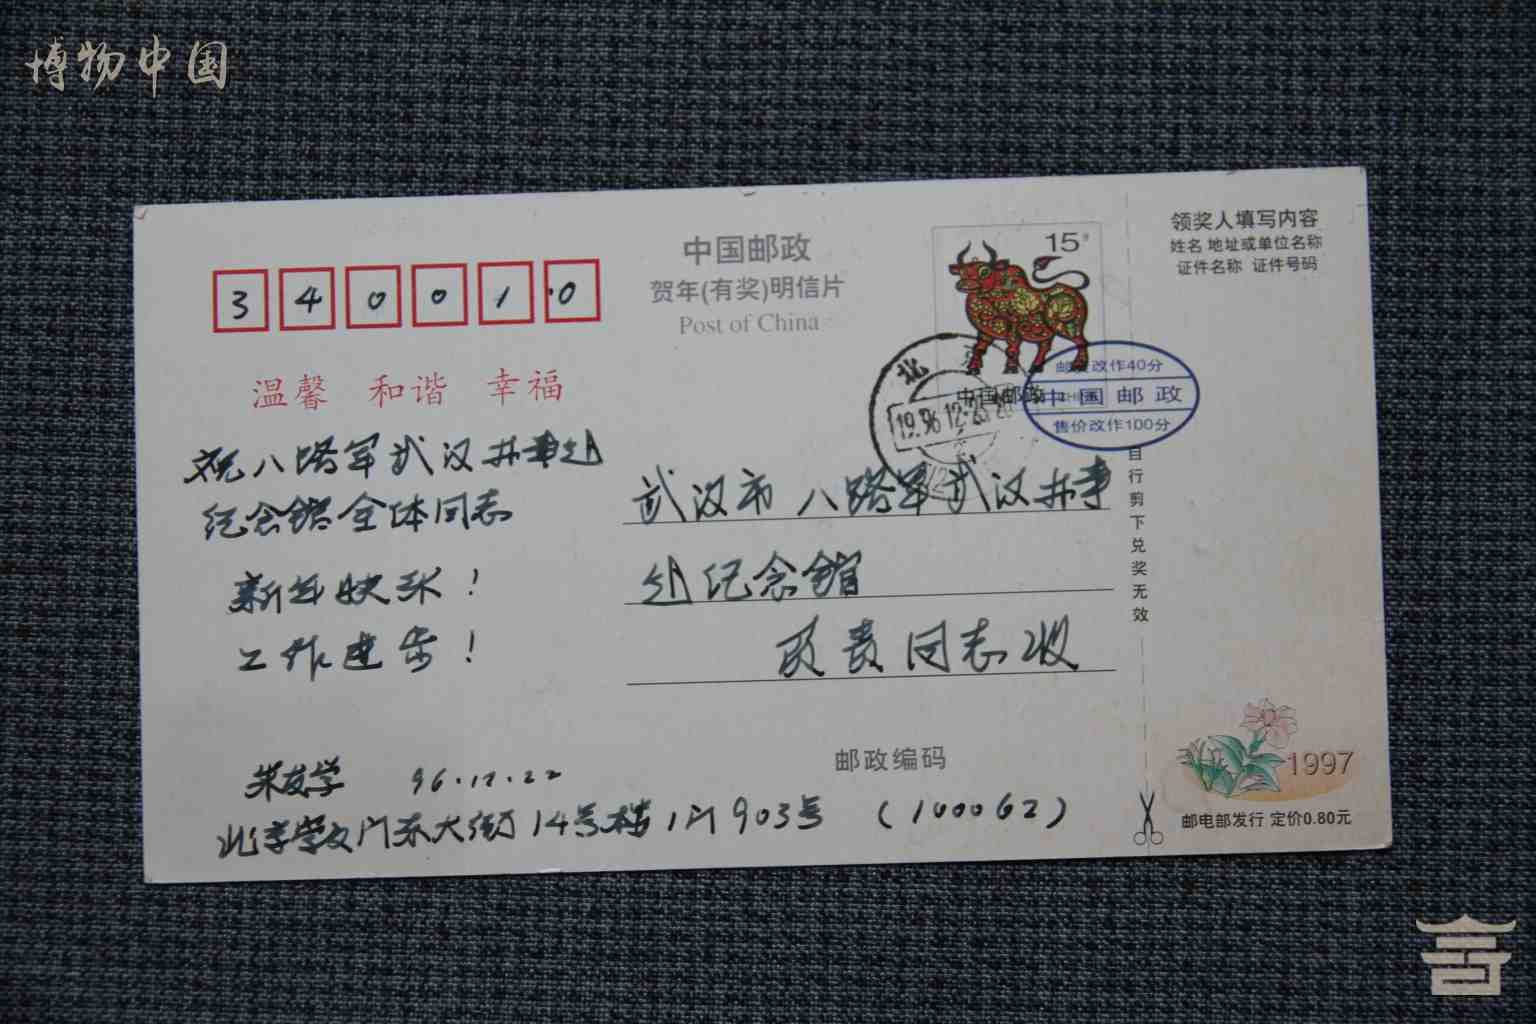 博物中国
中国邮政
贺年(有奖)明信片
Post of China
15
340010
温馨 和谐 幸福
祝八路军武汉办事处
纪念馆全体同志
新年快乐!
工作进步!
朱友学 96.12.22
北京 广东大街14号楼1门903号 (100062)
武汉市八路军武汉办事
处纪念馆
同志收
邮政编码
北
1996.12.23
中国邮政
邮资改作40分
中国邮政
售价改作100分
领奖人填写内容
姓名 地址或单位名称
证件名称 证件号码
自行剪下兑奖无效
1997
邮电部发行 定价0.80元